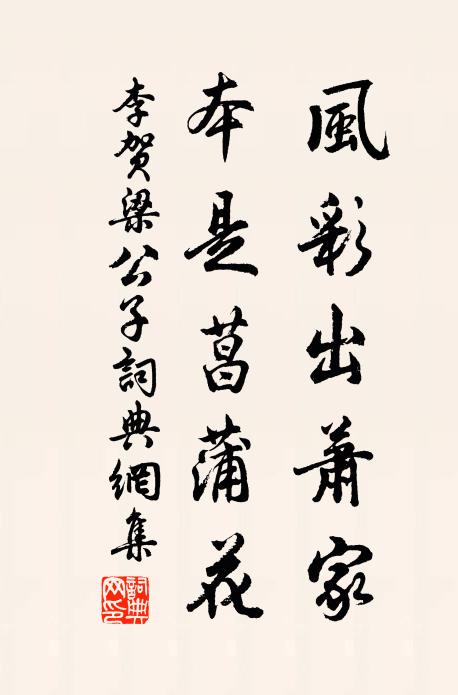 風彩出蕭家
本是菖蒲花
李贺梁公子詞典網集
詞典
网印